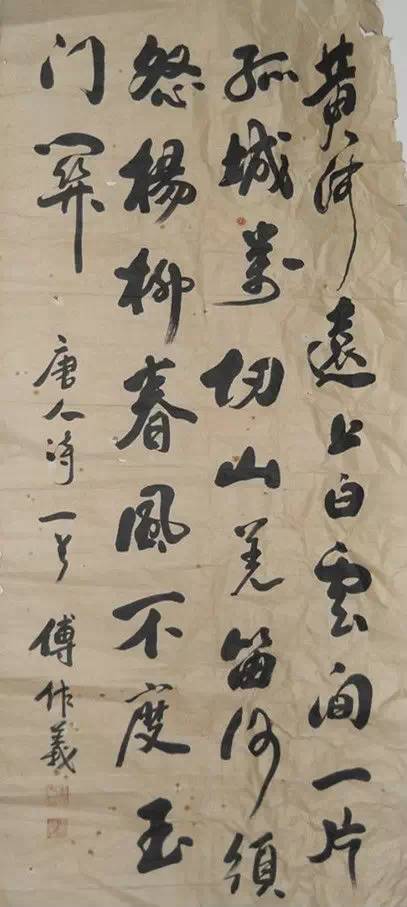 黄河遠上白雲间一片
孤城萬仞山羌笛何須
怨楊柳春風不度玉
门関
唐人诗一首
傅作義